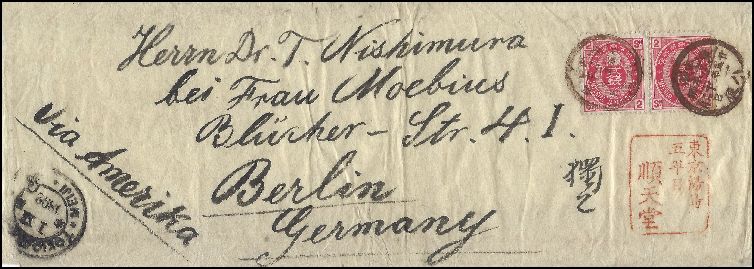 Herrn Dr. T. Nishimura
bei Frau Moebius
Blücher-Str. 4. I.
Berlin
Germany
via Amerika
獨乙
東京湯島
五丁目
順天堂
TOKIO
MEIJI